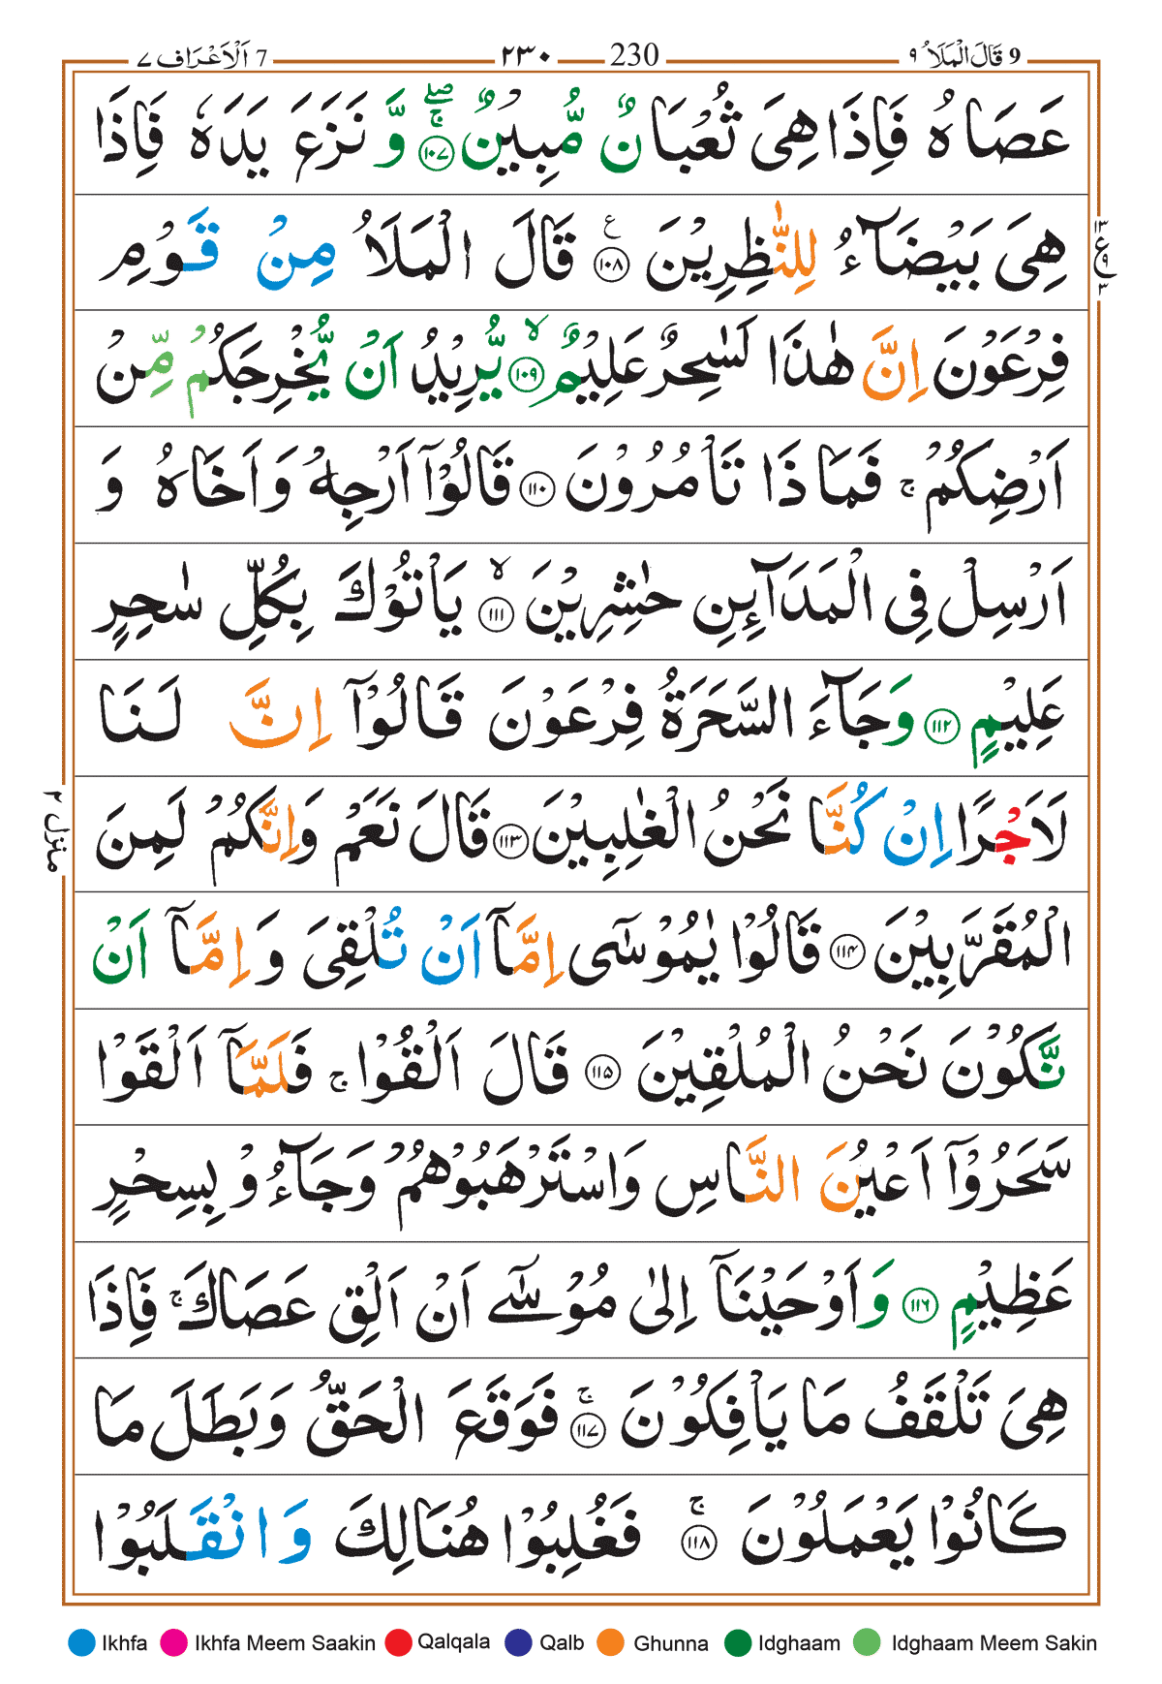 9 قَالَ الْمَلَاُ ۹ 230 ۲۳۰ 7 اَلْاَعْرَاف ۷
عَصَاهُ فَاِذَا هِیَ ثُعْبَانٌ مُّبِیْنٌ ۚۖ ۱۰۷ وَّ نَزَعَ یَدَهٗ فَاِذَا
هِیَ بَیْضَآءُ لِلنّٰظِرِیْنَ ۱۰۸ ع قَالَ الْمَلَاُ مِنْ قَوْمِ
۱۳ ع ۹ ۳
فِرْعَوْنَ اِنَّ هٰذَا لَسٰحِرٌ عَلِیْمٌ ۙ ۱۰۹ یُّرِیْدُ اَنْ یُّخْرِجَكُمْ مِّنْ
اَرْضِكُمْ ۚ فَمَا ذَا تَاْمُرُوْنَ ۱۱۰ قَالُوْۤا اَرْجِهْ وَ اَخَاهُ وَ
اَرْسِلْ فِی الْمَدَآىِٕنِ حٰشِرِیْنَ ۙ ۱۱۱ یَاْتُوْكَ بِكُلِّ سٰحِرٍ
عَلِیْمٍ ۱۱۲ وَ جَآءَ السَّحَرَةُ فِرْعَوْنَ قَالُوْۤا اِنَّ لَنَا
لَاَجْرًا اِنْ كُنَّا نَحْنُ الْغٰلِبِیْنَ ۱۱۳ قَالَ نَعَمْ وَ اِنَّكُمْ لَمِنَ
منزل ۲
الْمُقَرَّبِیْنَ ۱۱۴ قَالُوْا یٰمُوْسٰۤی اِمَّاۤ اَنْ تُلْقِیَ وَ اِمَّاۤ اَنْ
نَّكُوْنَ نَحْنُ الْمُلْقِیْنَ ۱۱۵ قَالَ اَلْقُوْا ۚ فَلَمَّاۤ اَلْقَوْا
سَحَرُوْۤا اَعْیُنَ النَّاسِ وَ اسْتَرْهَبُوْهُمْ وَ جَآءُوْ بِسِحْرٍ
عَظِیْمٍ ۱۱۶ وَ اَوْحَیْنَاۤ اِلٰی مُوْسٰۤی اَنْ اَلْقِ عَصَاكَ ۚ فَاِذَا
هِیَ تَلْقَفُ مَا یَاْفِكُوْنَ ۚ ۱۱۷ فَوَقَعَ الْحَقُّ وَ بَطَلَ مَا
كَانُوْا یَعْمَلُوْنَ ۚ ۱۱۸ فَغُلِبُوْا هُنَالِكَ وَ انْقَلَبُوْا
Ikhfa Ikhfa Meem Saakin Qalqala Qalb Ghunna Idghaam Idghaam Meem Sakin